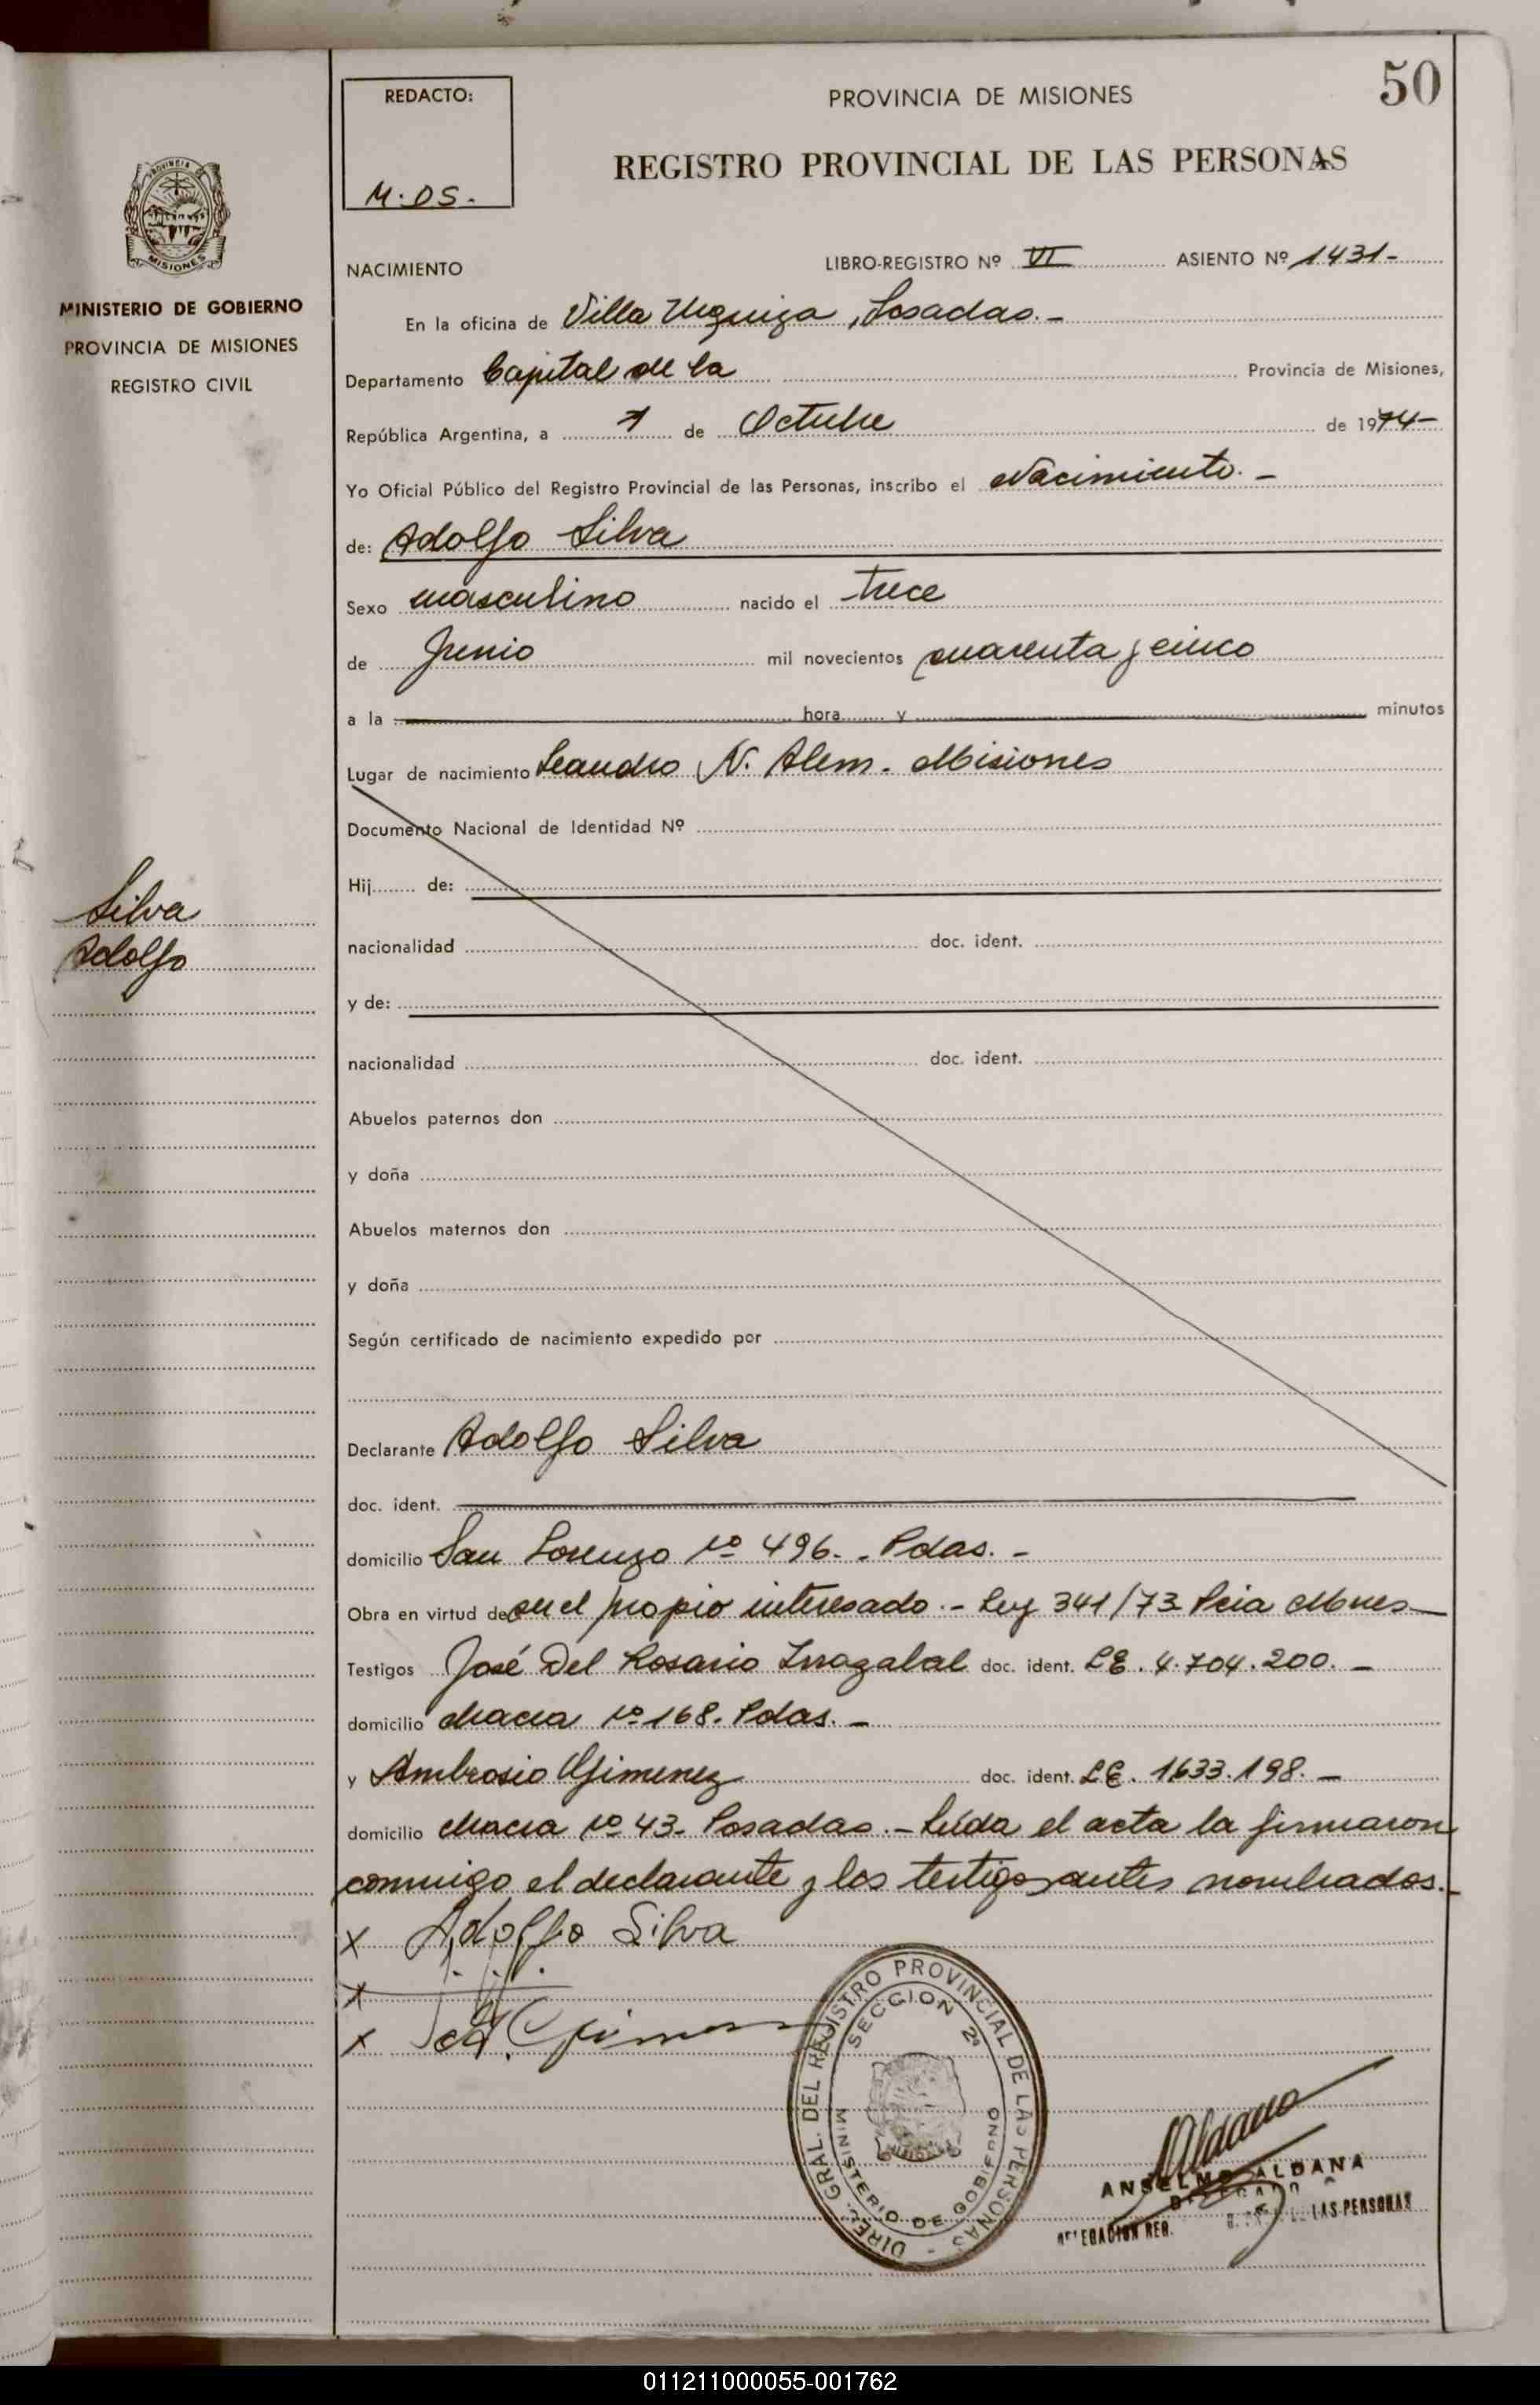 50
REDACTO:
M.DS.
PROVINCIA DE MISIONES
REGISTRO PROVINCIAL DE LAS PERSONAS
PROVINCIA
MISIONES
MINISTERIO DE GOBIERNO
PROVINCIA DE MISIONES
REGISTRO CIVIL
NACIMIENTO LIBRO-REGISTRO Nº VI ASIENTO Nº 1431-
En la oficina de Villa Urquiza, Posadas.-
Departamento Capital de la Provincia de Misiones,
República Argentina, a 1 de Octubre de 1974-
Yo Oficial Público del Registro Provincial de las Personas, inscribo el Nacimiento.-
de: Adolfo Silva
Sexo masculino nacido el trece
de Junio mil novecientos cuarenta y cinco
a la hora y minutos
Lugar de nacimiento Leandro N. Alem. Misiones
Documento Nacional de Identidad Nº
Hij de:
Silva
Adolfo
nacionalidad doc. ident.
y de:
nacionalidad doc. ident.
Abuelos paternos don
y doña
Abuelos maternos don
y doña
Según certificado de nacimiento expedido por
Declarante Adolfo Silva
doc. ident.
domicilio San Lorenzo Nº 496.. Pdas.-
Obra en virtud de ser el propio interesado.- Ley 341/73 Pcia Mnes-
Testigos José Del Rosario Irrazabal doc. ident. LE. 4.704.200.-
domicilio Chacra Nº 168. Pdas.-
y Ambrosio Gimenez doc. ident. LE. 1633.198.-
domicilio Chacra Nº 43- Posadas.- Leída el acta la firmaron
conmigo el declarante y los testigos antes nombrados.-
x Adolfo Silva
x
x
DIREC. GRAL. DEL REGISTRO PROVINCIAL DE LAS PERSONAS -
SECCION 2ª
MINISTERIO DE GOBIERNO
Aldana
ANSELMO ALDANA
DELEGACION REG. LAS PERSONAS
011211000055-001762